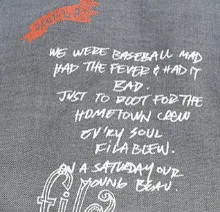 WE WERE BASEBALL MAD
HAD THE FEVER & HAD IT
BAD.
JUST TO ROOT FOR THE
HOMETOWN CREW
EV'RY SOUL
FILA BLEW.
ON A SATURDAY OUR
YOUNG BEAU.